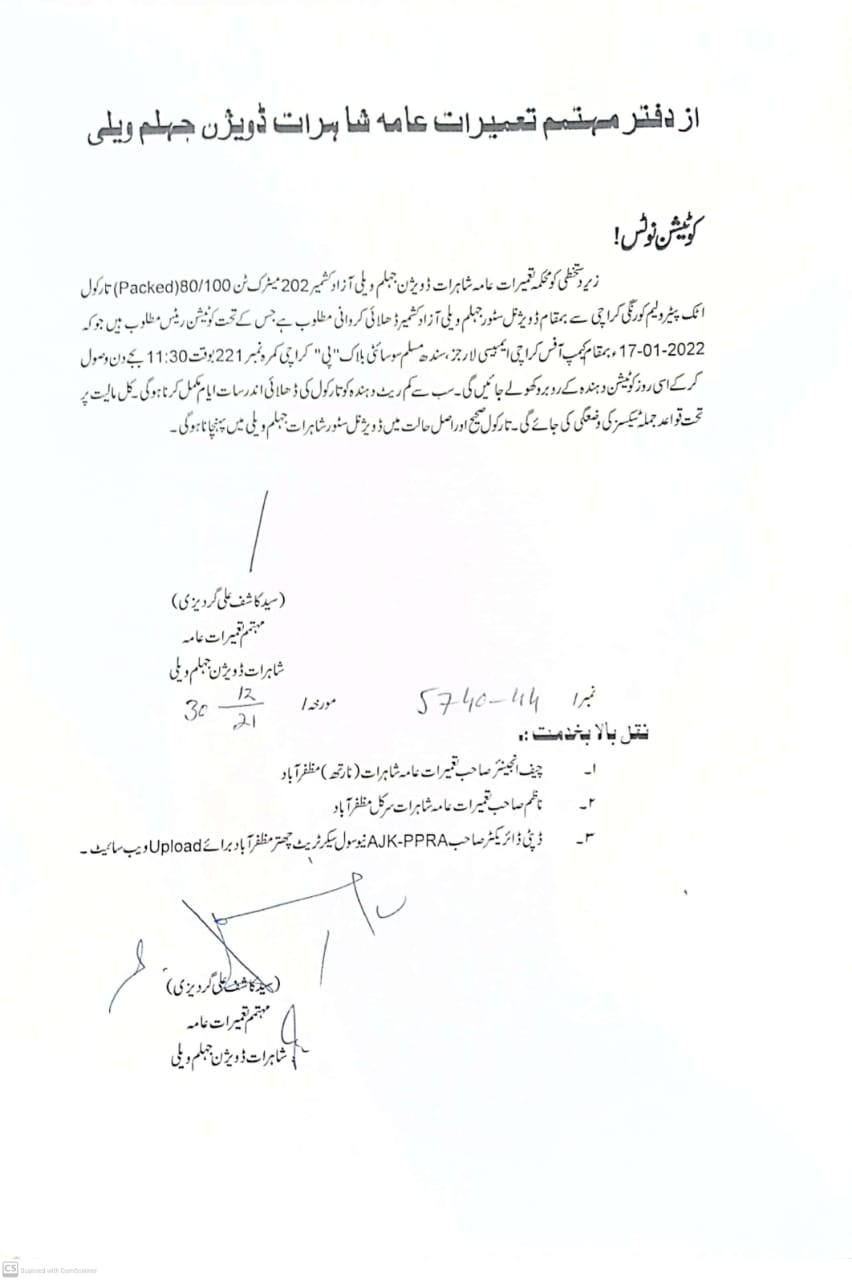 از دفتر مہتمم تعمیرات عامہ شاہرات ڈویژن جہلم ویلی
کوٹیشن نوٹس!
زیر دستخطی کو محکمہ تعمیرات عامہ شاہرات ڈویژن جہلم ویلی آزاد کشمیر 202 میٹرک ٹن 80/100(Packed) تارکول
اٹک پیٹرولیم کورنگی کراچی سے بمقام ڈویژنل سٹور جہلم ویلی آزاد کشمیر ڈھلائی کروانی مطلوب ہے جس کے تحت کوٹیشن ریٹس مطلوب ہیں جو کہ
17-01-2022ء بمقام کیمپ آفس کراچی ایمبیسی لارجز، سندھ مسلم سوسائٹی بلاک "بی" کراچی کمرہ نمبر 221 بوقت 11:30 بجے دن وصول
کر کے اسی روز کوٹیشن دہندہ کے روبرو کھولے جائیں گی۔ سب سے کم ریٹ دہندہ کو تارکول کی ڈھلائی اندر سات ایام مکمل کرنا ہوگی۔ کل مالیت پر
تحت قواعد جملہ ٹیکسز کی وضعگی کی جائے گی۔ تارکول صحیح اور اصل حالت میں ڈویژنل سٹور شاہرات جہلم ویلی میں پہنچانا ہوگی۔
(سید کاشف علی گردیزی)
مہتمم تعمیرات عامہ
شاہرات ڈویژن جہلم ویلی
نمبر/ 5740-44 مورخہ/ 30 12/21
نقل بالا بخدمت :۔
۱۔ چیف انجینئر صاحب تعمیرات عامہ شاہرات (نارتھ) مظفرآباد
۲۔ ناظم صاحب تعمیرات عامہ شاہرات سرکل مظفرآباد
۳۔ ڈپٹی ڈائریکٹر صاحب AJK-PPRA نیو سول سیکرٹریٹ چھتر مظفرآباد برائے Upload ویب سائیٹ۔
(سید کاشف علی گردیزی)
مہتمم تعمیرات عامہ
شاہرات ڈویژن جہلم ویلی
CS Scanned with CamScanner